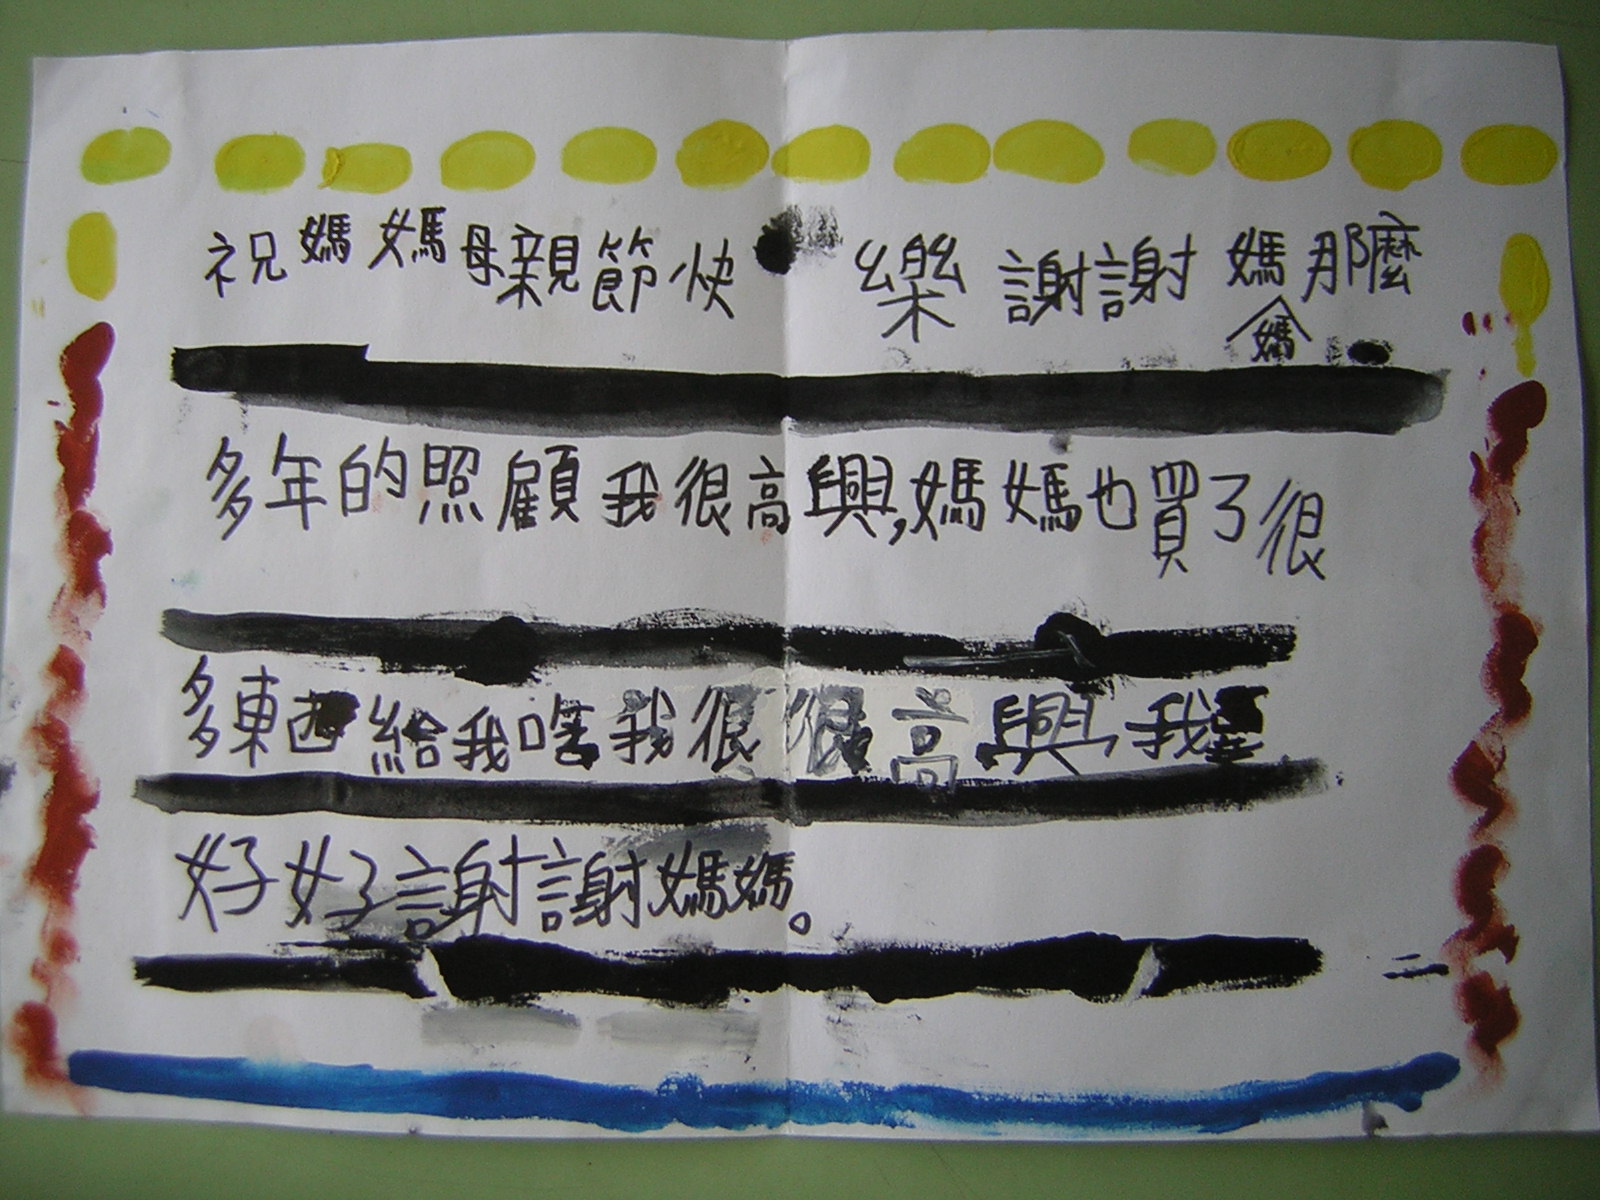 祝媽媽母親節快樂謝謝媽媽那麼
多年的照顧我很高興,媽媽也買了很
多東西給我啥我很很高興我要
好好謝謝媽媽。